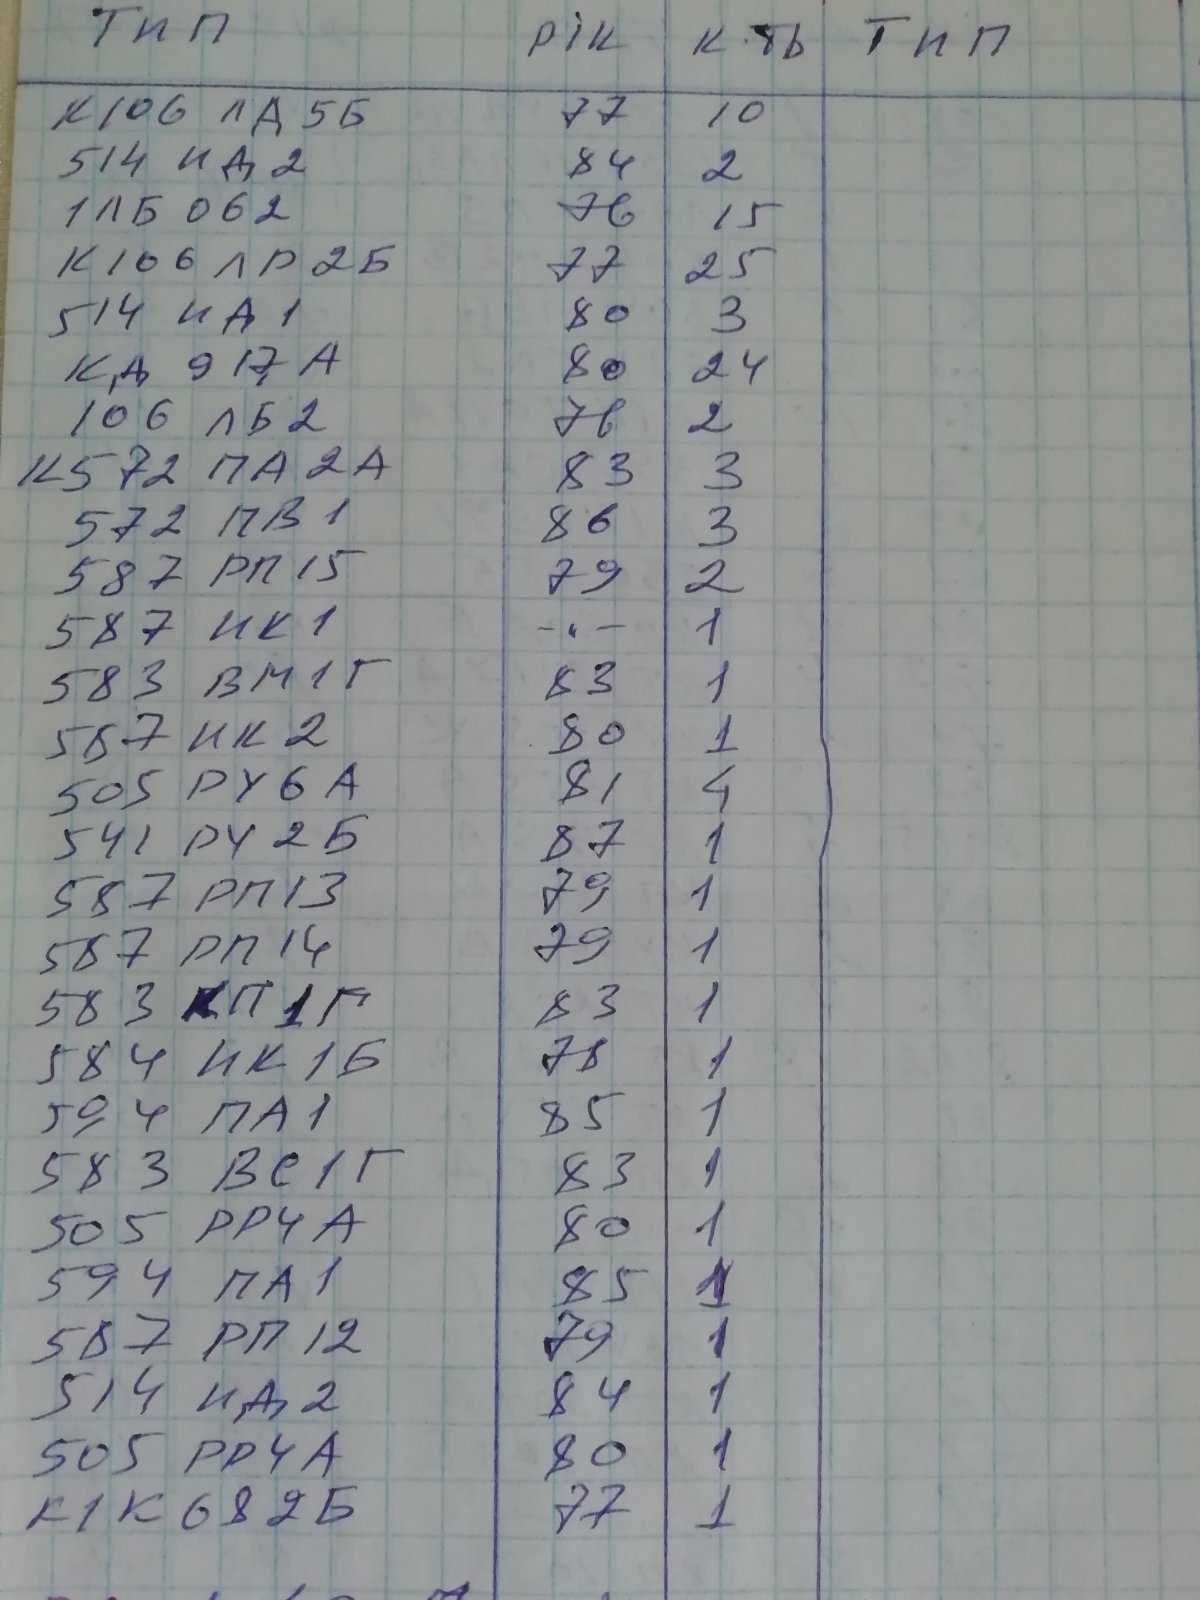 ТИП рік к-ть ТИП
К106 ЛД 5Б 77 10
514 ИД 2 84 2
1ЛБ 062 76 15
К106 ЛР 2Б 77 25
514 ИД 1 80 3
КД 917 А 80 24
106 ЛБ2 78 2
К572 ПА 2А 83 3
572 ПВ 1 86 3
587 РП 15 79 2
587 ИК 1 -"- 1
583 ВМ1Г 83 1
587 ИК 2 80 1
505 РУ 6 А 81 4
541 РУ 2 Б 87 1
587 РП13 79 1
587 РП 14 79 1
583 КП 1Г 83 1
584 ИК 1Б 78 1
594 ПА 1 85 1
583 ВС1Г 83 1
505 РР4 А 80 1
594 ПА 1 85 1
587 РП 12 79 1
514 ИД 2 84 1
505 РР4А 80 1
К1К 682Б 77 1